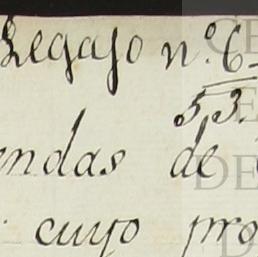 Legajo nº. 6
5,3.
endas de
cuyo pro